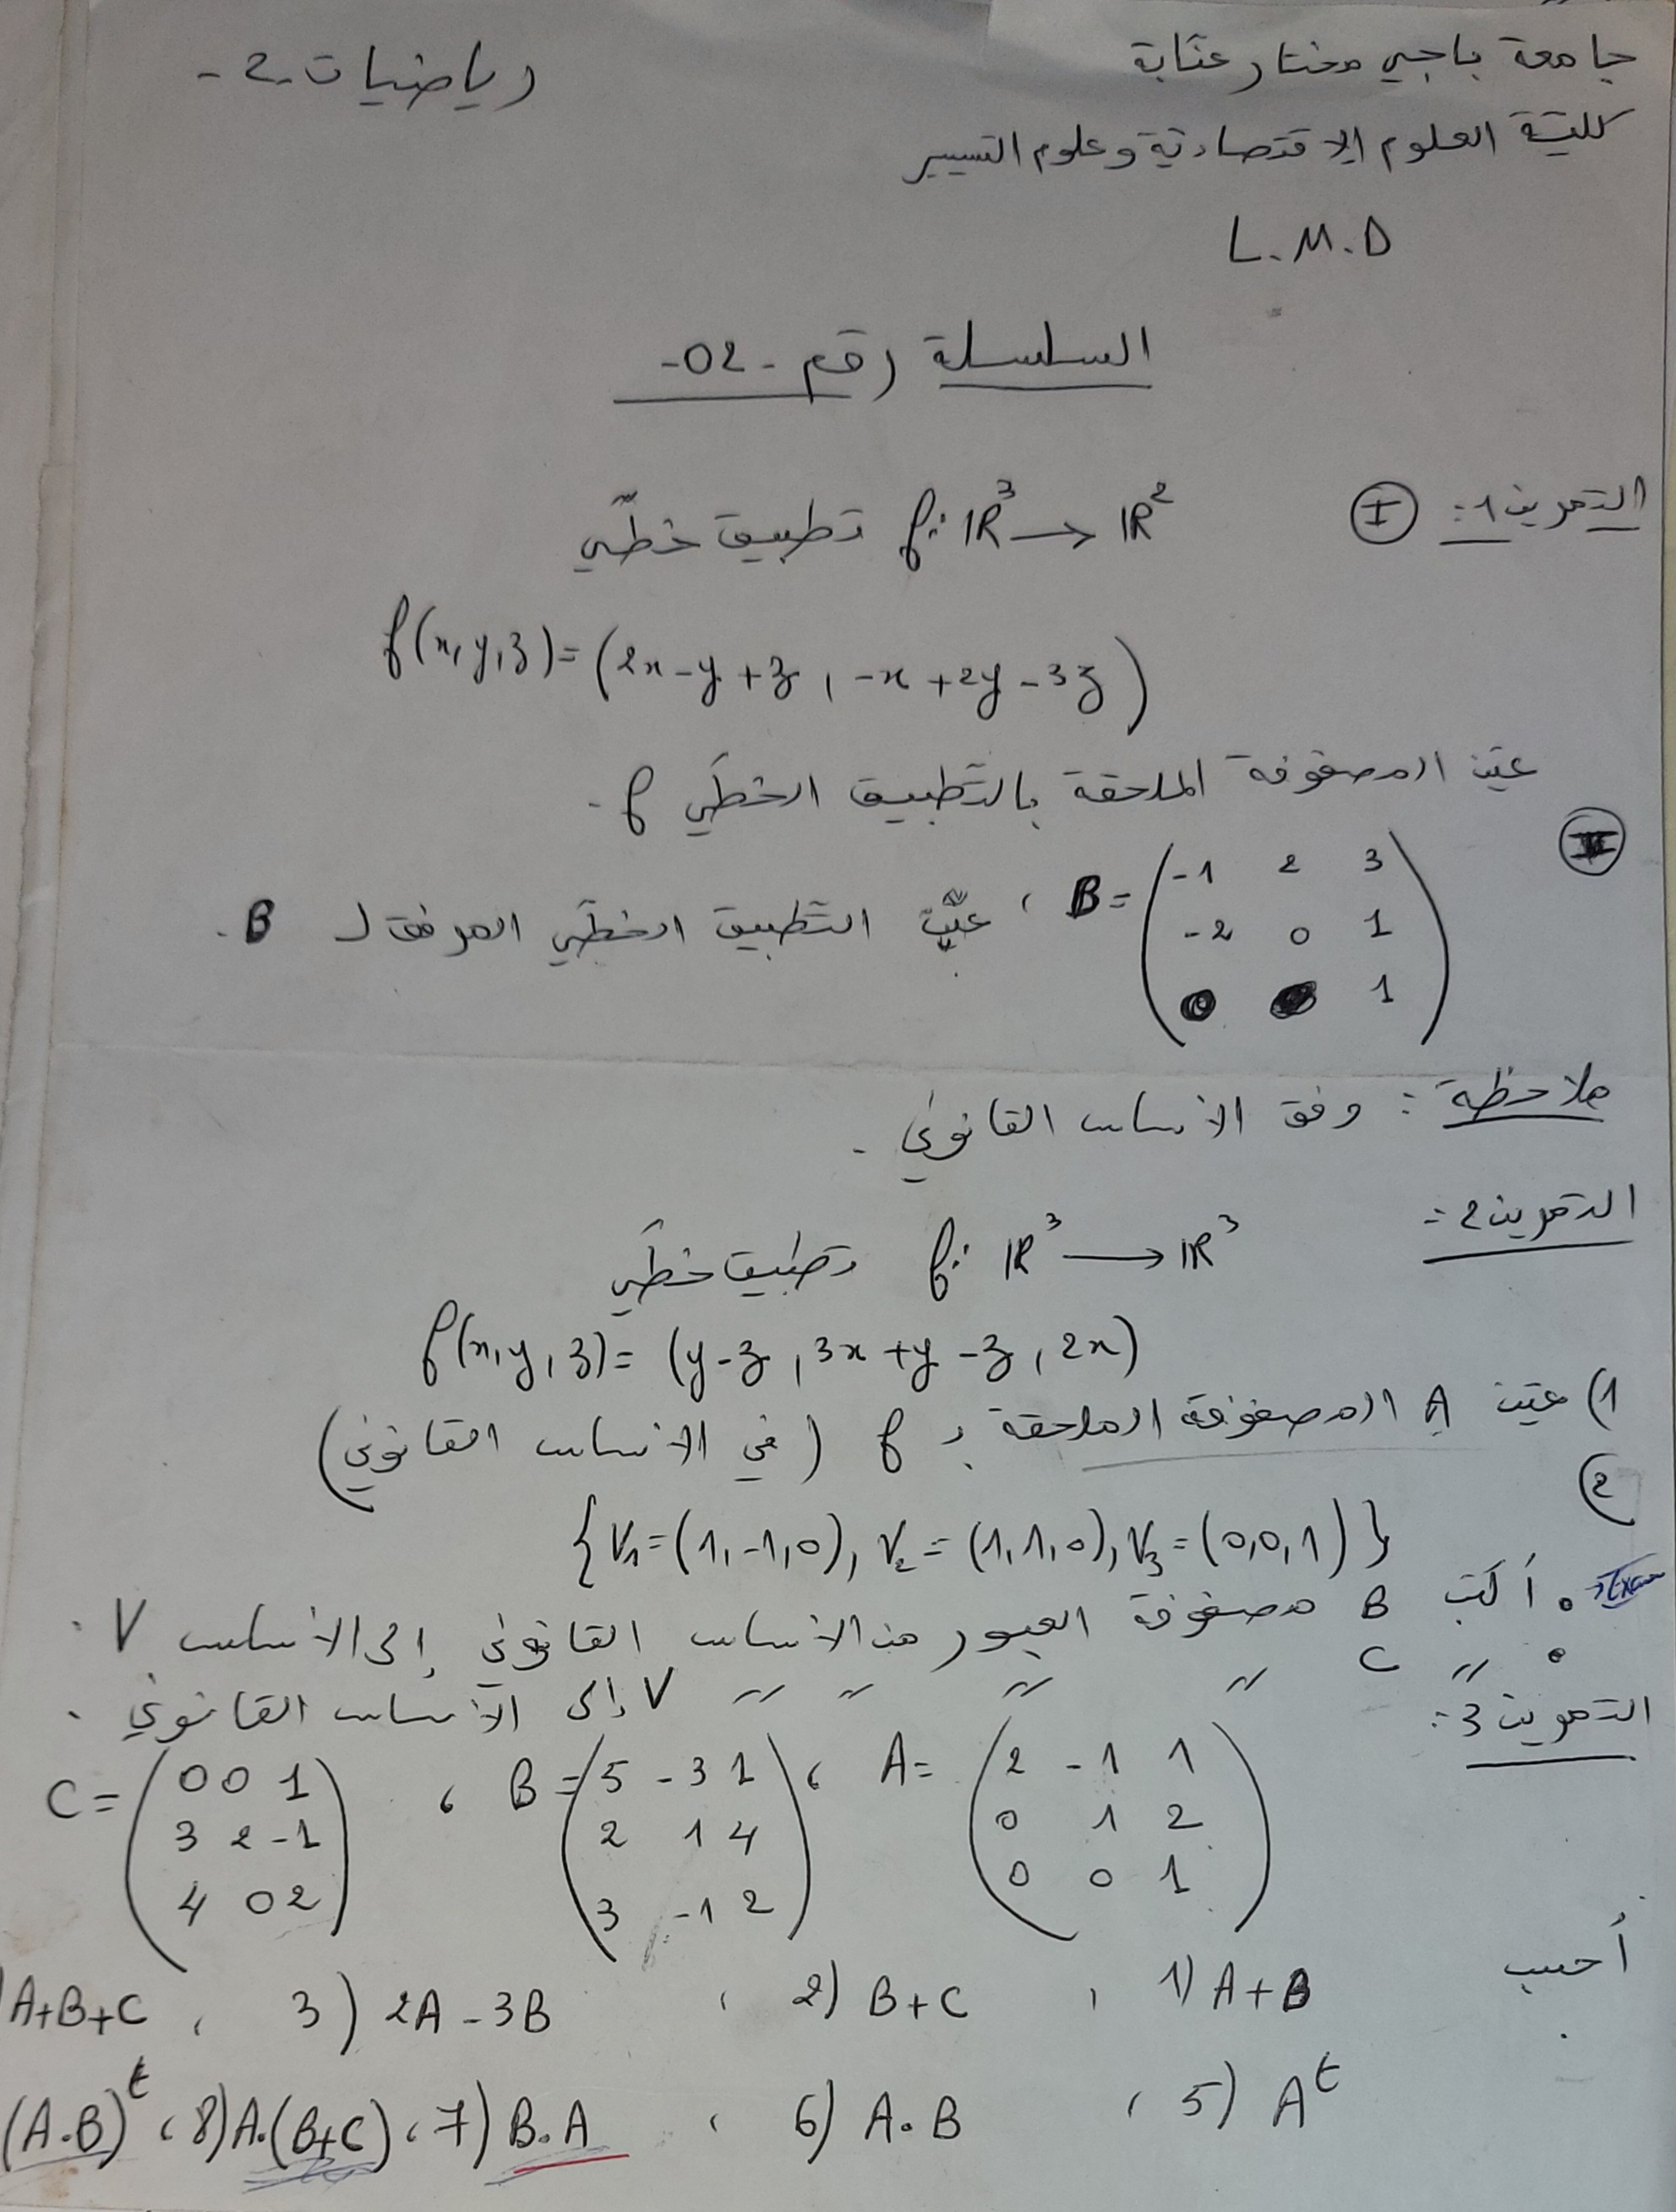 جامعة باجي مختار عنابة
رياضيات -2-
كلية العلوم الإقتصادية وعلوم التسيير
L.M.D
السلسلة رقم -02-
التمرين 1: I f: IR³ → IR² تطبيق خطّي
f(x,y,z)=(2x-y+z, -x+2y-3z)
عيّن المصفوفة الملحقة بالتطبيق الخطّي f.
II B= (-1 2 3
-2 0 1
0 0 1) ، عيّن التطبيق الخطّي المرفق لـ B.
ملاحظة: وفق الأساس القانوني.
التمرين 2: f: IR³ → IR³ تطبيق خطّي
f(x,y,z)= (y-z, 3x+y-z, 2x)
1) عيّن A المصفوفة الملحقة بـ f (في الأساس القانوني)
2)
{V₁=(1,-1,0), V₂=(1,1,0), V₃=(0,0,1)}
• أكتب B مصفوفة العبور من الأساس القانوني إلى الأساس V.
• // C // // // // V إلى الأساس القانوني.
التمرين 3:
A= (2 -1 1
0 1 2
0 0 1) ، B= (5 -3 1
2 1 4
3 -1 2) ، C= (0 0 1
3 2 -1
4 0 2)
أحسب
1) A+B , 2) B+C , 3) 2A-3B , A+B+C
5) Aᵗ , 6) A.B , 7) B.A , 8) A.(B+C) , (A.B)ᵗ